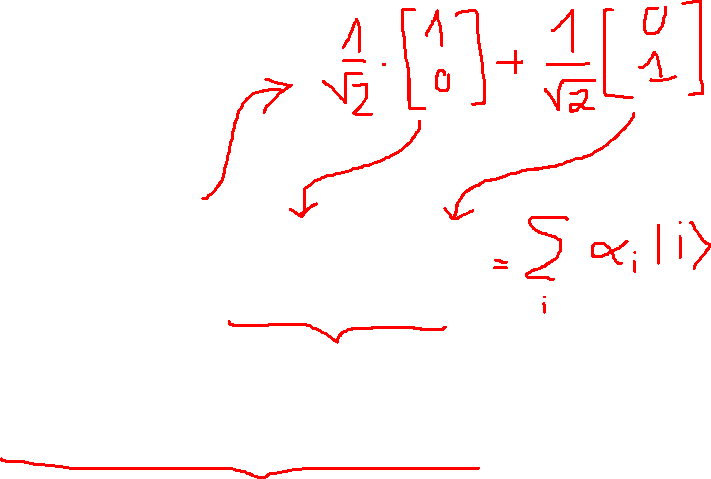 1/√2 · [1 0] + 1/√2 [0 1]
= ∑ᵢ αᵢ |i⟩